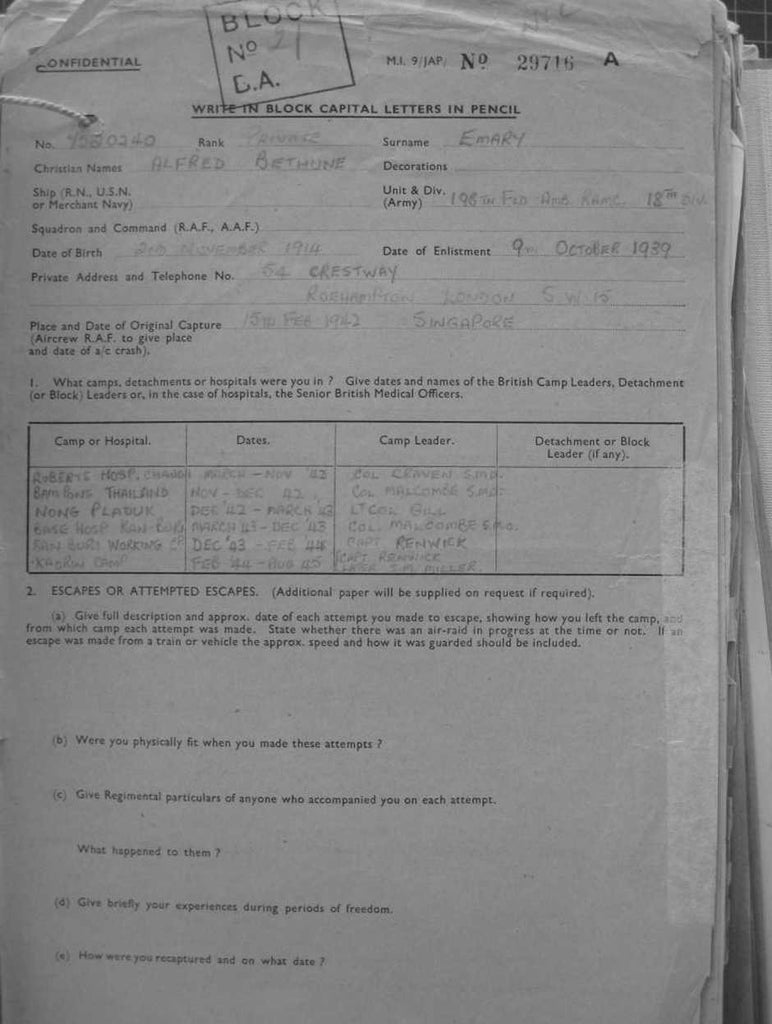 BLOCK
Nº 21
G.A.
CONFIDENTIAL
M.I. 9/JAP. Nº 29716 A
WRITE IN BLOCK CAPITAL LETTERS IN PENCIL
No. Rank PRIVATE Surname EMARY
Christian Names ALFRED BETHUNE Decorations
Ship (R.N., U.S.N. or Merchant Navy)
Unit & Div. (Army) 196TH FLD AMB. RAMC. 18TH DIV.
Squadron and Command (R.A.F., A.A.F.)
Date of Birth 2ND NOVEMBER 1914 Date of Enlistment 9TH OCTOBER 1939
Private Address and Telephone No. 54 CRESTWAY
ROEHAMPTON LONDON S.W 15
Place and Date of Original Capture 15TH FEB 1942 SINGAPORE
(Aircrew R.A.F. to give place
and date of a/c crash).
1. What camps, detachments or hospitals were you in ? Give dates and names of the British Camp Leaders, Detachment
(or Block) Leaders or, in the case of hospitals, the Senior British Medical Officers.
Camp or Hospital. Dates. Camp Leader. Detachment or Block
Leader (if any).
ROBERTS HOSP. CHANGI MARCH - NOV '42 COL CRAVEN S.M.O.
BAM PONG THAILAND NOV - DEC 42 COL MALCOMBE S.M.O.
NONG PLADUK DEC '42 - MARCH 43 LT COL GILL
BASE HOSP KAN-BURI MARCH 43 - DEC '43 COL. MALCOMBE S.M.O.
KAN BURI WORKING CP DEC '43 - FEB '44 CAPT RENWICK
CAMP FEB '44 - AUG 45 CAPT. RENWICK
LATER S.M. MILLER.
2. ESCAPES OR ATTEMPTED ESCAPES. (Additional paper will be supplied on request if required).
(a) Give full description and approx. date of each attempt you made to escape, showing how you left the camp, and
from which camp each attempt was made. State whether there was an air-raid in progress at the time or not. If an
escape was made from a train or vehicle the approx. speed and how it was guarded should be included.
(b) Were you physically fit when you made these attempts ?
(c) Give Regimental particulars of anyone who accompanied you on each attempt.
What happened to them ?
(d) Give briefly your experiences during periods of freedom.
(e) How were you recaptured and on what date ?